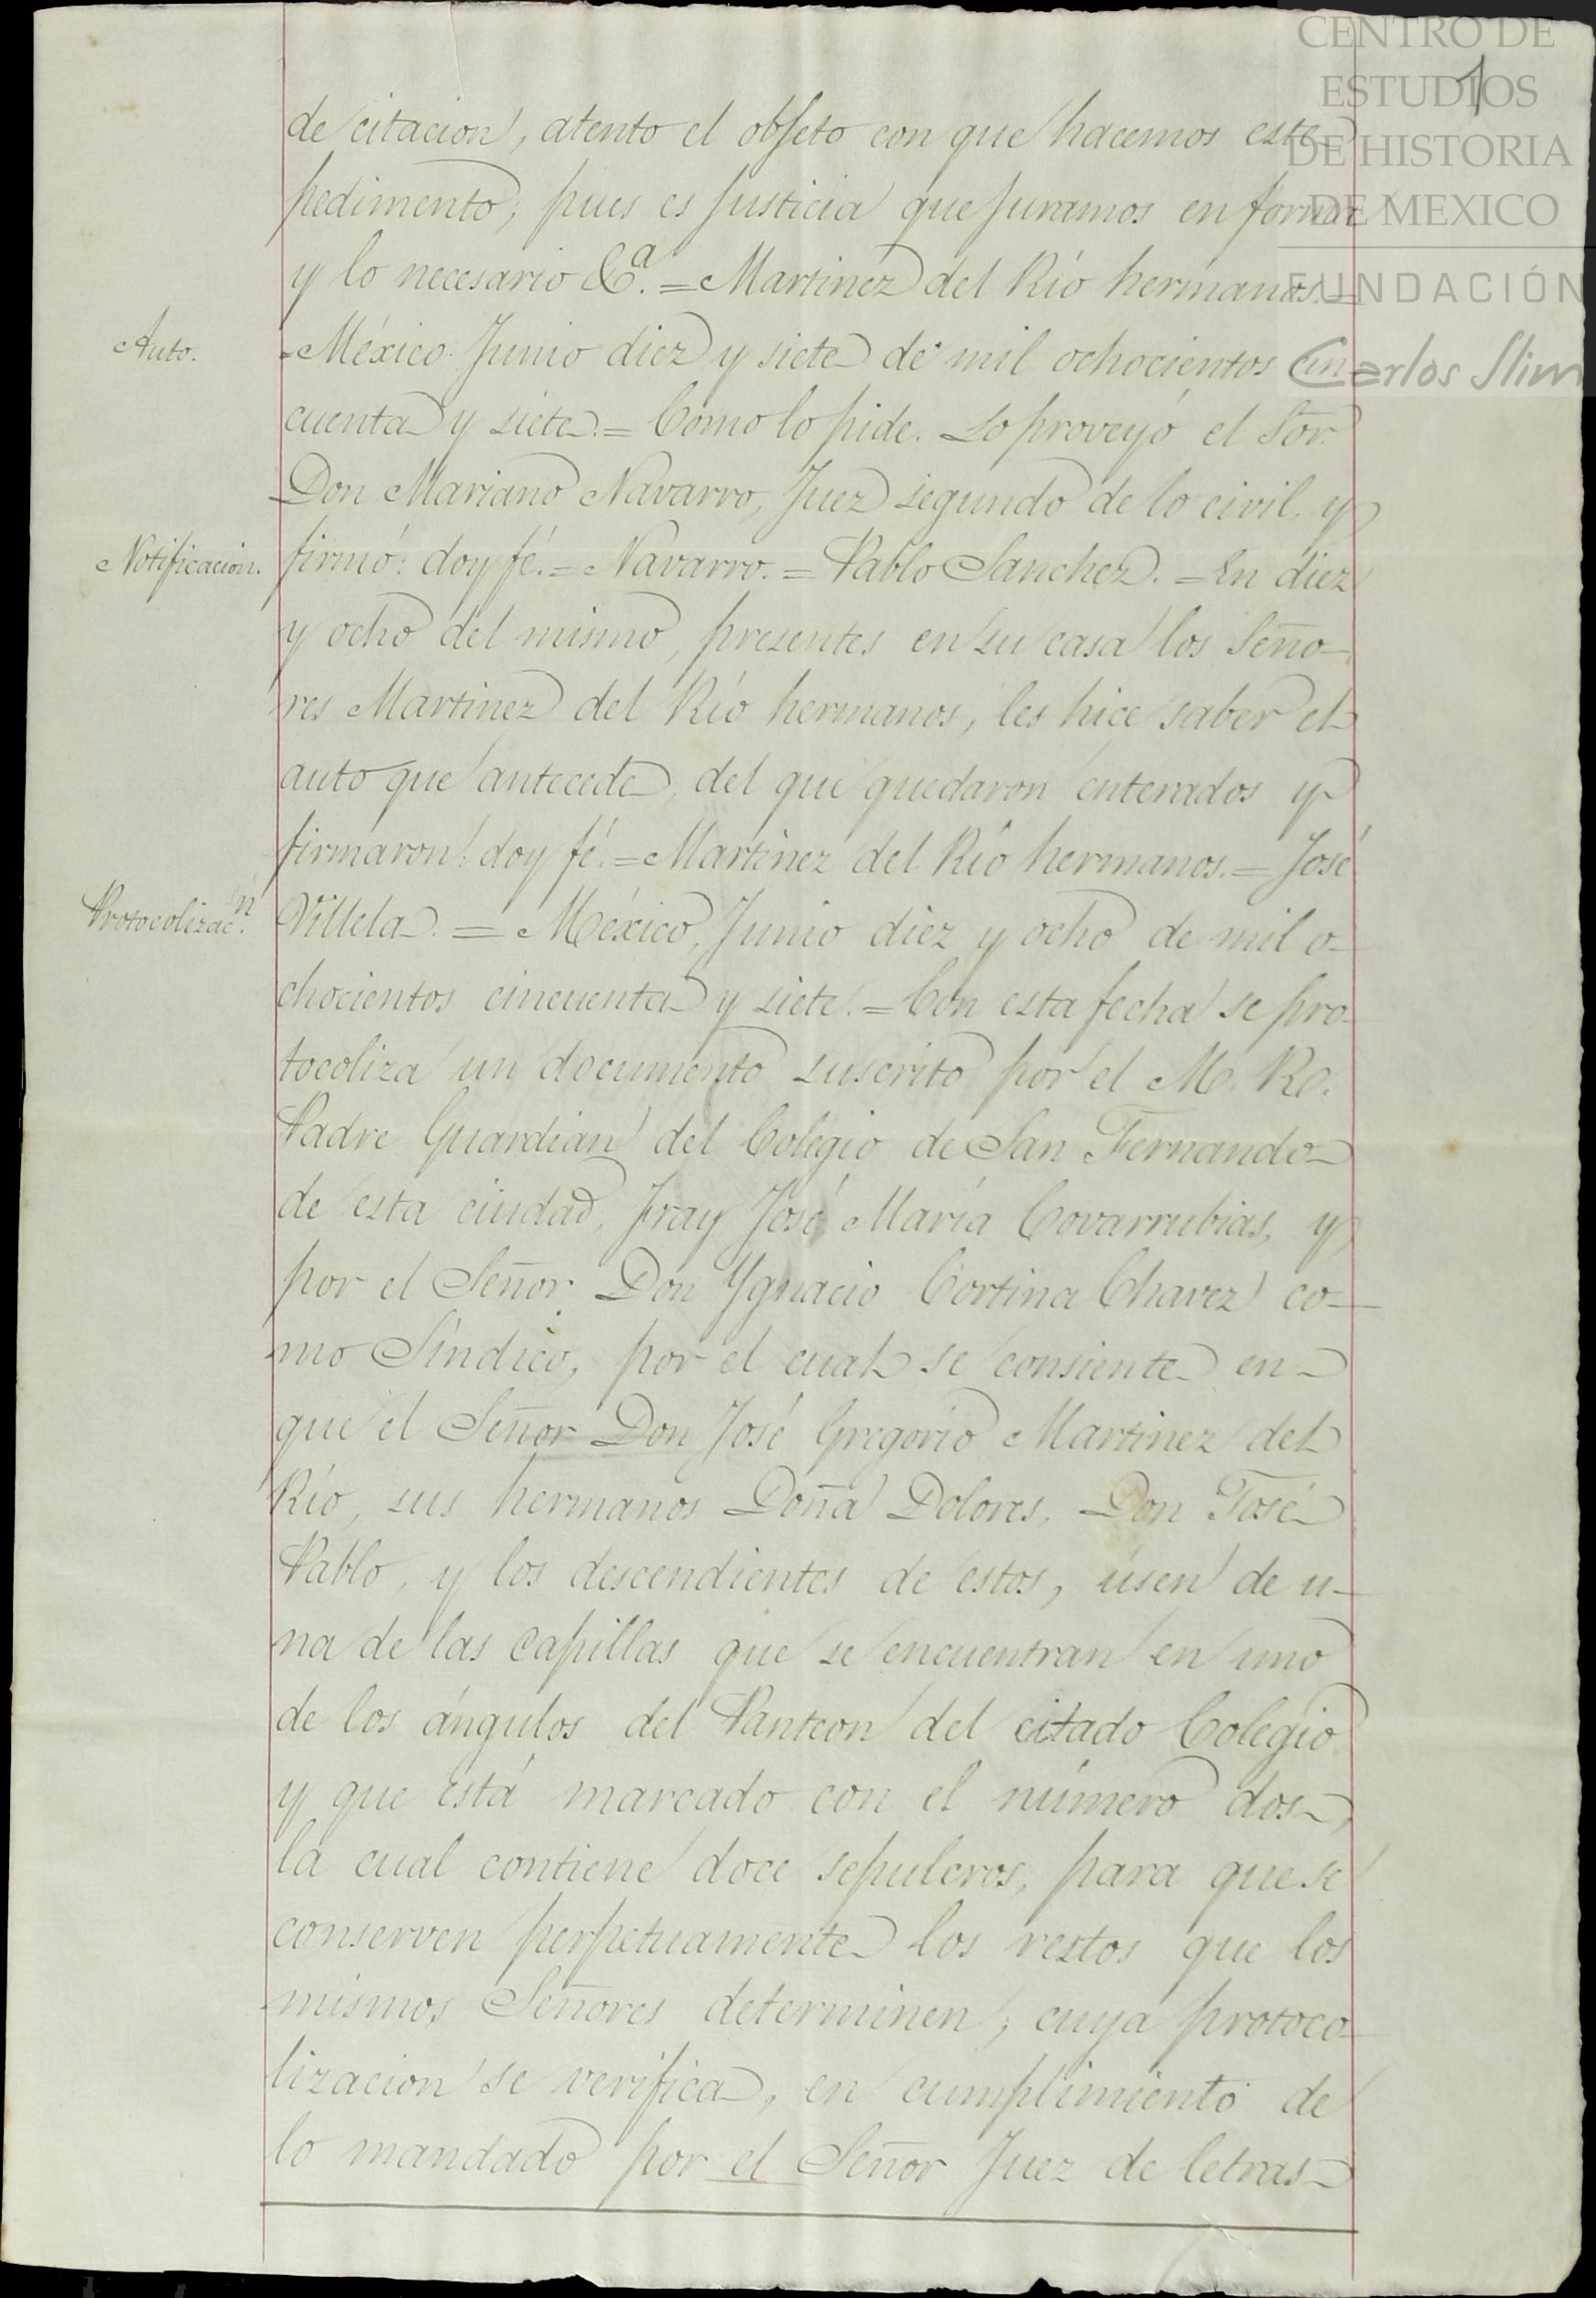 CENTRO DE
ESTUDIOS
DE HISTORIA
DE MEXICO
FUNDACIÓN
Carlos Slim
1
de citacion, atento el objeto con que hacemos este
pedimento; pues es justicia que juramos en forma
y lo necesario &ª. = Martinez del Río hermanos. =
Auto.
= México Junio diez y siete de mil ochocientos cin-
cuenta y siete. = Como lo pide. Lo proveyó el Sor.
Don Mariano Navarro, Juez segundo de lo civil, y
Notificacion.
firmó: doy fé. = Navarro. = Pablo Sanchez. = En diez
y ocho del mismo, presentes en su casa los Seño-
res Martinez del Río hermanos, les hice saber el
auto que antecede, del que quedaron enterados y
firmaron: doy fé. = Martinez del Río hermanos. = José
Protocolizacn.
Villela. = México, Junio diez y ocho de mil o-
chocientos cincuenta y siete. = Con esta fecha se pro-
tocoliza un documento suscrito por el M. R.
Padre Guardian del Colegio de San Fernando
de esta ciudad, Fray José María Covarrubias, y
por el Señor Don Ygnacio Cortina Chavez co-
mo Síndico, por el cual se consiente en
que el Señor Don José Gregorio Martinez del
Río, sus hermanos Doña Dolores, Don José
Pablo, y los descendientes de estos, úsen de u-
na de las capillas que se encuentran en uno
de los ángulos del Panteon del citado Colegio
y que está marcado con el número dos,
la cual contiene doce sepulcros, para que se
conserven perpetuamente los restos que los
mismos Señores determinen; cuya protoco-
lizacion se verifica, en cumplimiento de
lo mandado por el Señor Juez de letras